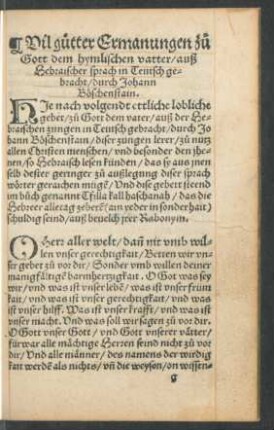 ¶ Vil gůtter Ermanungen zů
Gott dem hymlischen vatter/auß
Hebraischer sprach in Teutsch ge-
bracht/durch Johann
Böschenstain.
HJe nach volgendt ettliche lobliche
gebet/zů Gott dem vater/auß der He-
braischen zungen in Teutsch gebracht/durch Jo
hann Böschenstain/diser zungen lerer/zů nutz
allen Christen menschen/vnd besonder den jhe-
nen/so Hebraisch lesen kündēn/das sy auß jnen
selb dester geringer zů außlegung diser sprach
wörter gerauchen mügē/Vnd dise gebett steend
im bůch genannt Tfilla kall haschanah/das die
Hebreer alletag zebetē/ain yeder in sonderhait/
schuldig seind/auß beuelch jrer Rabonym.
O Herr aller welt/dañ nit vmb wil-
len vnser gerechtigkait/Betten wir vn-
ser gebet zů vor dir/Sonder vmb willen deiner
manigfältigkē barmhertzigkait. O Got was sey
wir/vnd was ist vnser lebē/was ist vnser frum
kait/vnd was ist vnser gerechtigkait/vnd was
ist vnser hayl. Was ist vnser krafft/vnd was ist
vnser macht. Vnd was soll wir sagen zů vor dir.
O Gott vnser Gott/vnd Gott vnserer vätter/
fürwar alle mächtige Herren seind nicht zů vor
dir/Vnd alle männer/des namens der wirdig
kait werdē als nichts/vñ die weysen/on wissen-
g